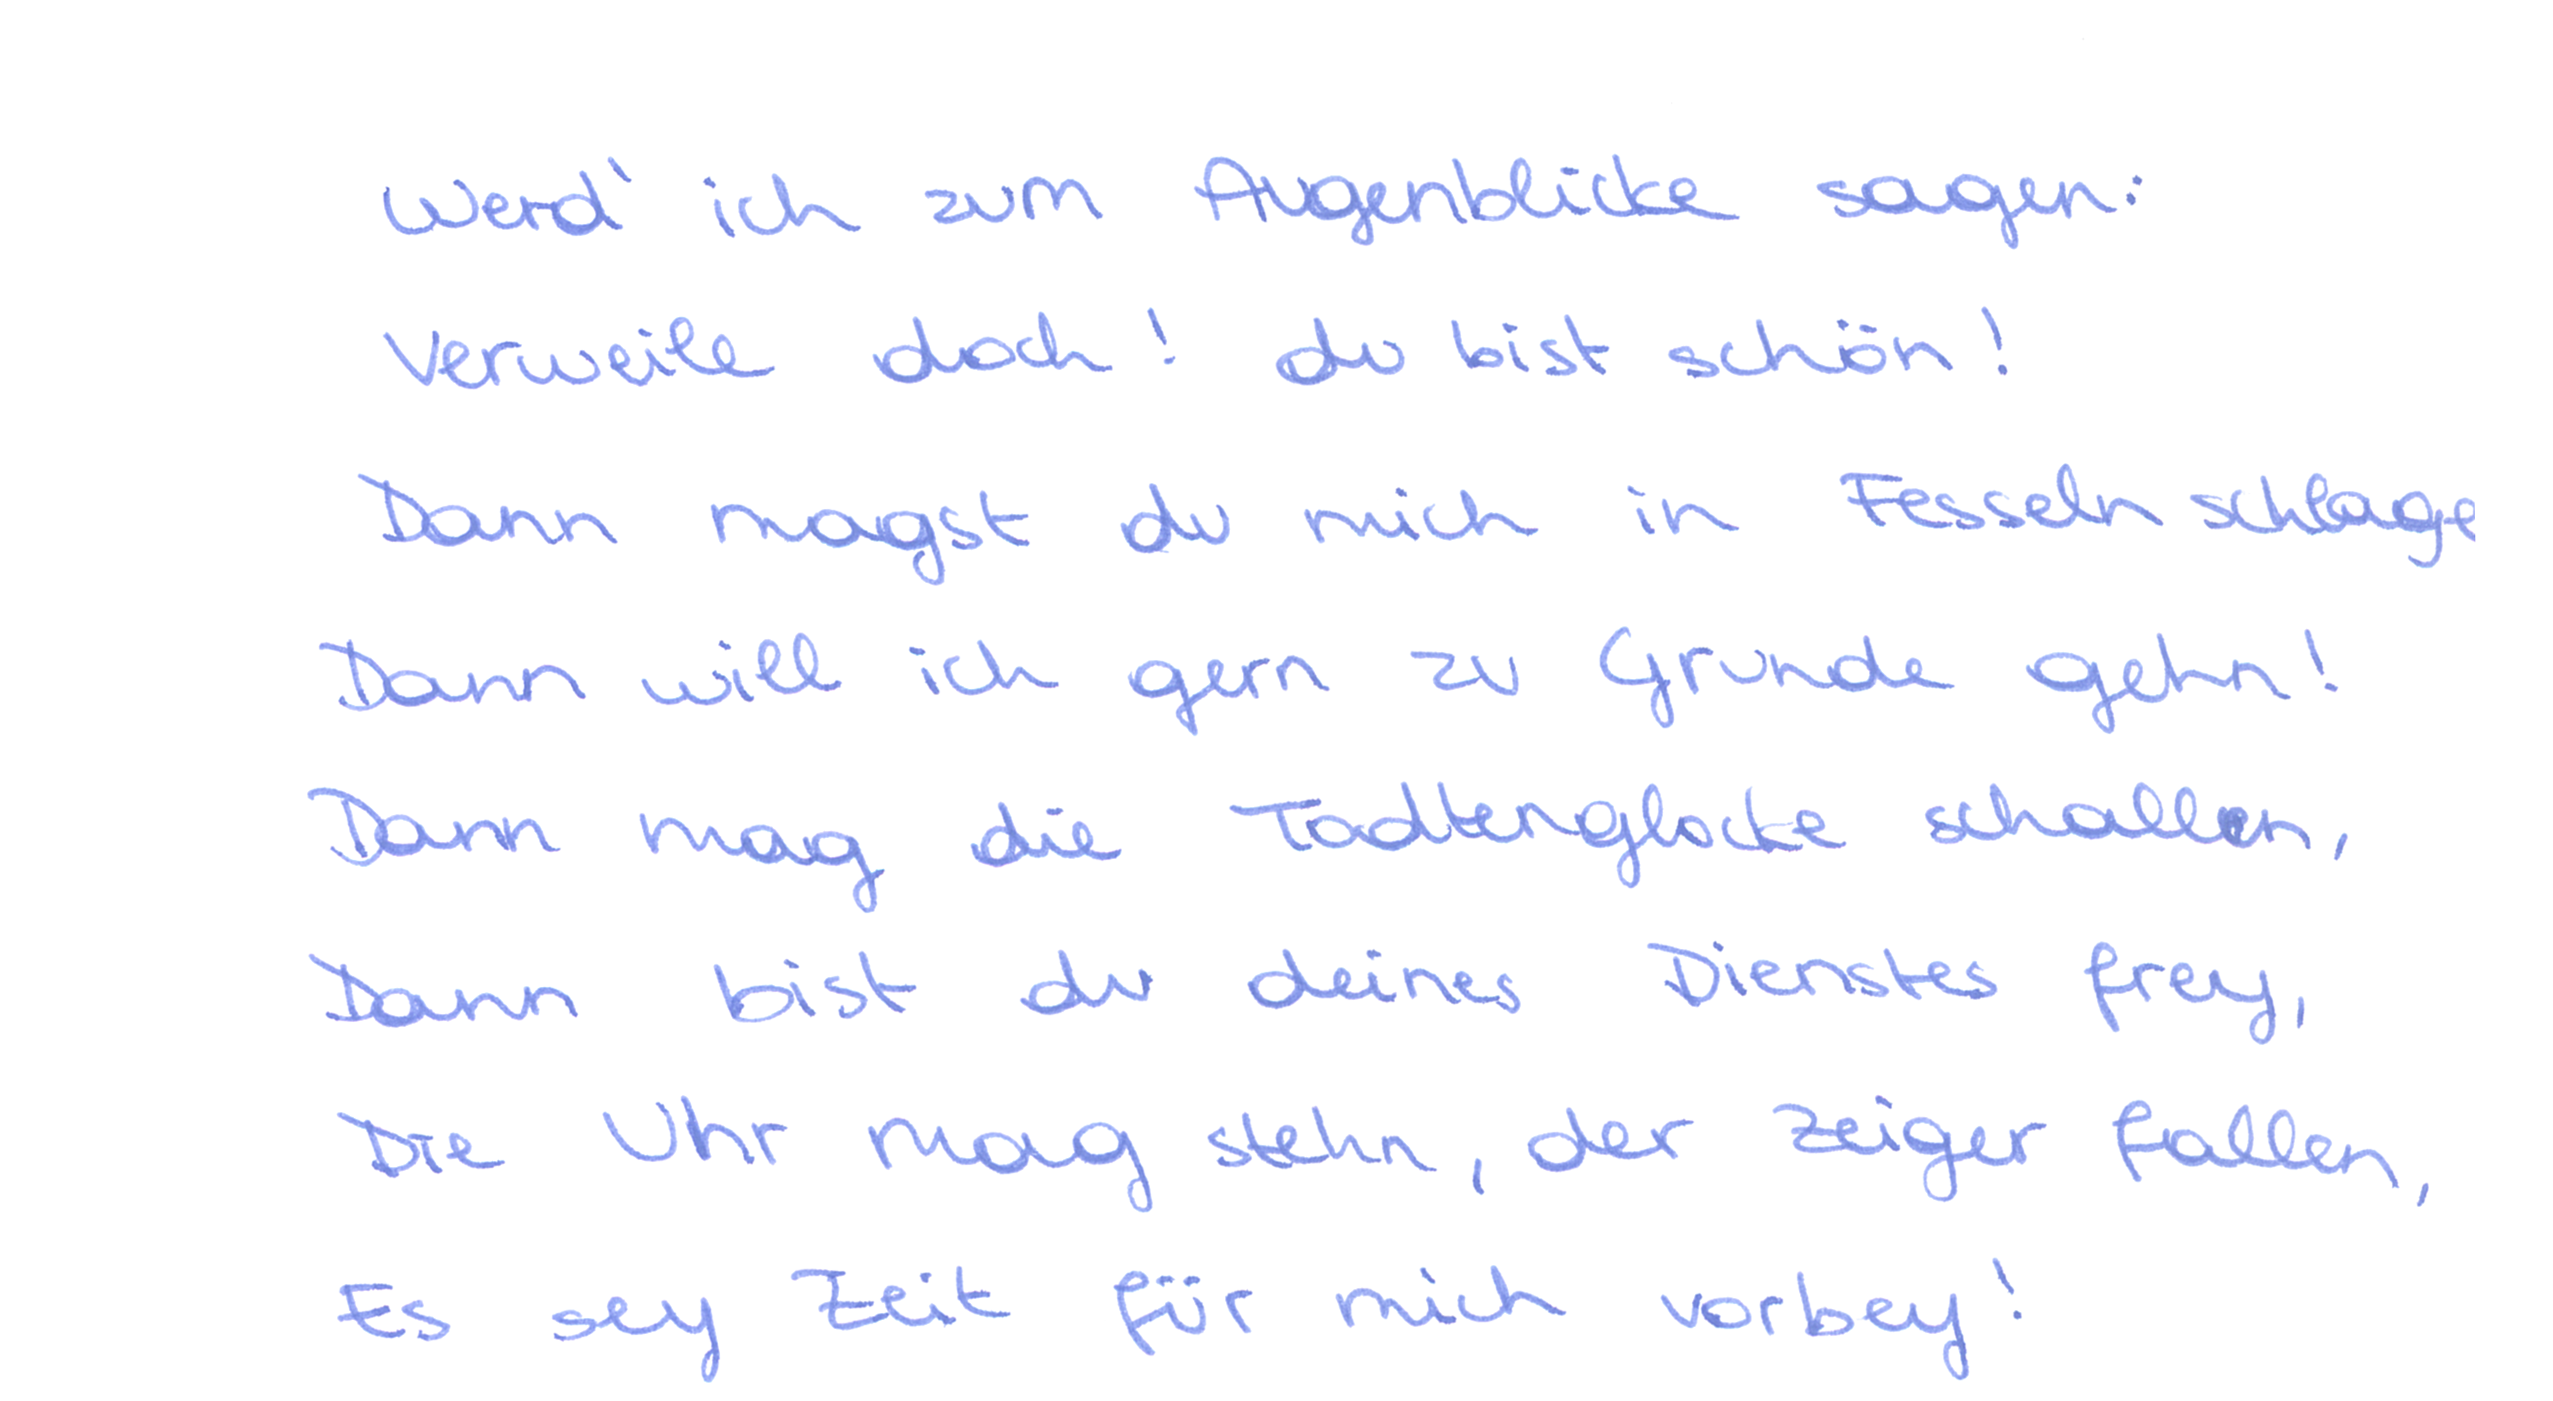 Werd' ich zum Augenblicke sagen:
Verweile doch! du bist schön!
Dann magst du mich in Fesseln schlage
Dann will ich gern zu Grunde gehn!
Dann mag die Todtenglocke schallen,
Dann bist du deines Dienstes frey,
Die Uhr mag stehn, der Zeiger fallen,
Es sey Zeit für mich vorbey!